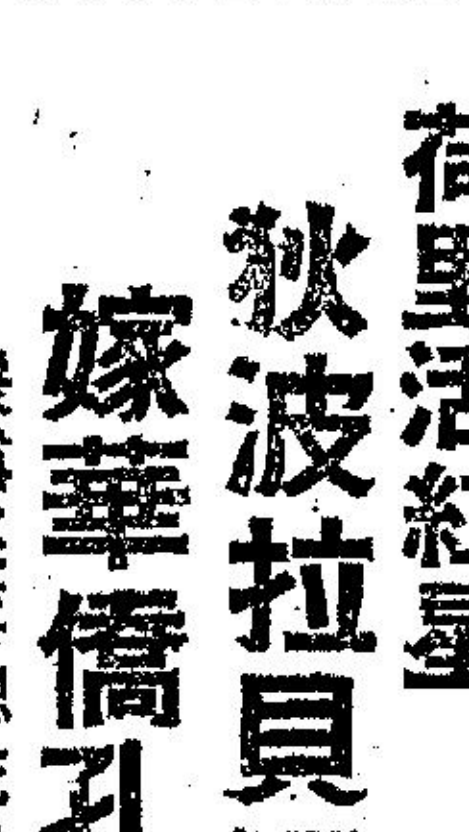 荷里活紅星
狄波拉貝
嫁華僑孔